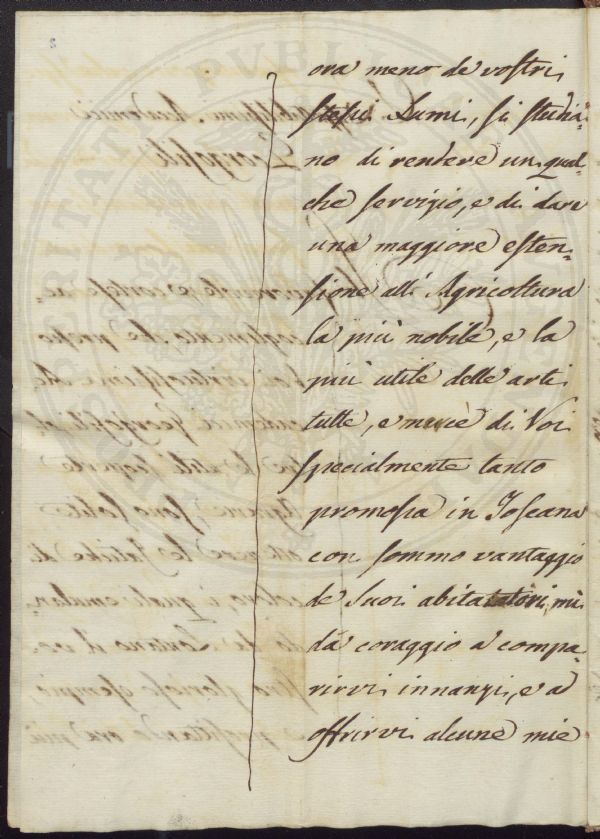 ora meno de vostri
stessi Lumi, si studia-
no di rendere un qual-
che servigio, e di dare
una maggiore esten-
sione all' Agricoltura
la più nobile, e la
più utile delle arti
tutte, e mercè di Voi
specialmente tanto
promossa in Toscana
con sommo vantaggio
de Suoi abitatori, mi
dà coraggio a compa-
rirvi innanzi, e a
offrirvi alcune mie